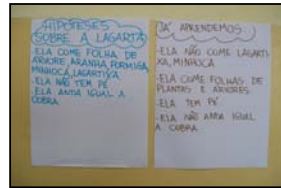 HIPÓTESES
SOBRE A LAGARTA
-ELA COME FOLHA DE
ÁRVORE, ARANHA, FORMIGA,
MINHOCA, LAGARTIXA
-ELA NÃO TEM PÉ
-ELA ANDA IGUAL A
COBRA
JÁ APRENDEMOS
-ELA NÃO COME LAGARTI
XA, MINHOCA
-ELA COME FOLHAS DE
PLANTAS E ÁRVORES
-ELA TEM PÉ
-ELA NÃO ANDA IGUAL
A COBRA